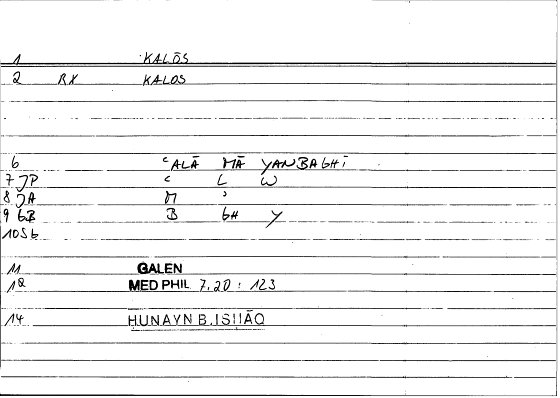 1 KALŌS
2 RX KALOS
6 ʿALĀ MĀ YANBAGHĪ
7 JP ʿ L W
8 JA M ʾ
9 GB B GH Y
10 SG
11 GALEN
12 MED PHIL 7.20 : 123
14 HUNAYN B.ISḤĀQ